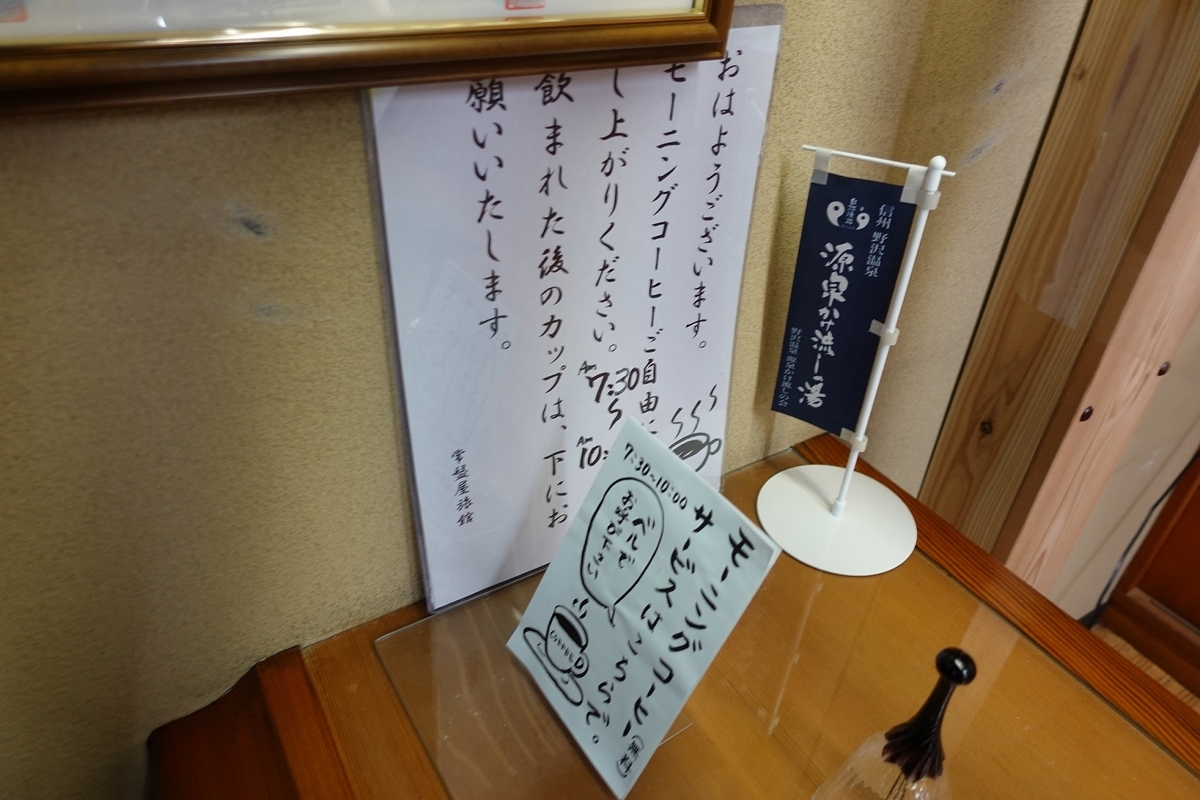 おはようございます。
モーニングコーヒーご自由に
し上がりください。
Am
7:30
〜
Am
10:
飲まれた後のカップは、下にお
願いいたします。
常盤屋旅館
モーニングコーヒー(無料)
サービスはこちらで。
7:30~10:00
ベルで
お呼び下さい
COFFEE
信州 野沢温泉
源泉かけ流しの湯
野沢温泉 源泉かけ流しの会